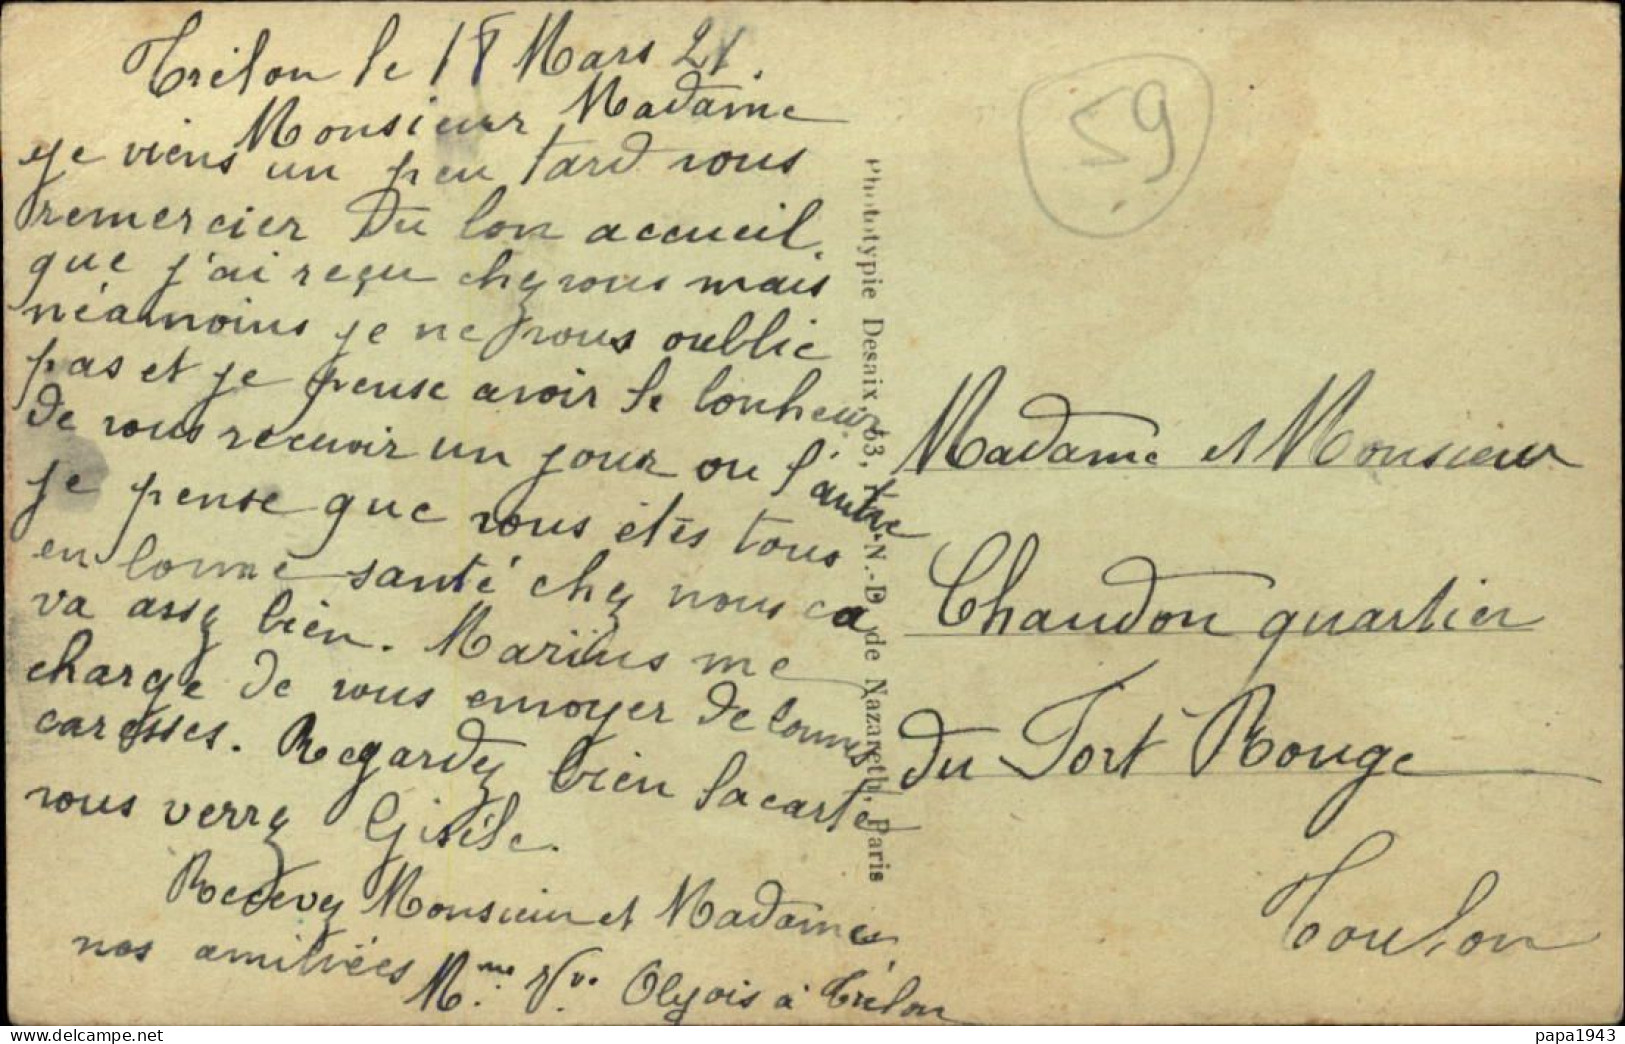 Trélon le 18 Mars 21.
Monsieur Madame
je viens un peu tard vous
remercier du bon accueil
que j'ai reçu chez vous mais
néamoins je ne vous oublie
pas et je pense avoir le bonheur
de vous recevoir un jour ou l'autre
je pense que vous êtes tous
en bonne santé chez nous ca
va assez bien. Mariüs me
charge de vous envoyer de bonnes
caresses. Regardez bien la carte
vous verrez Gisèle.
Recevez Monsieur et Madame
nos amitiées
Mme Vve Olyois à Trélon
Phototypie Desaix, 63, N.-D de Nazareth, Paris
59
Madame et Monsieur
Chaudon quartier
du Fort Rouge
Toulon
papa1943